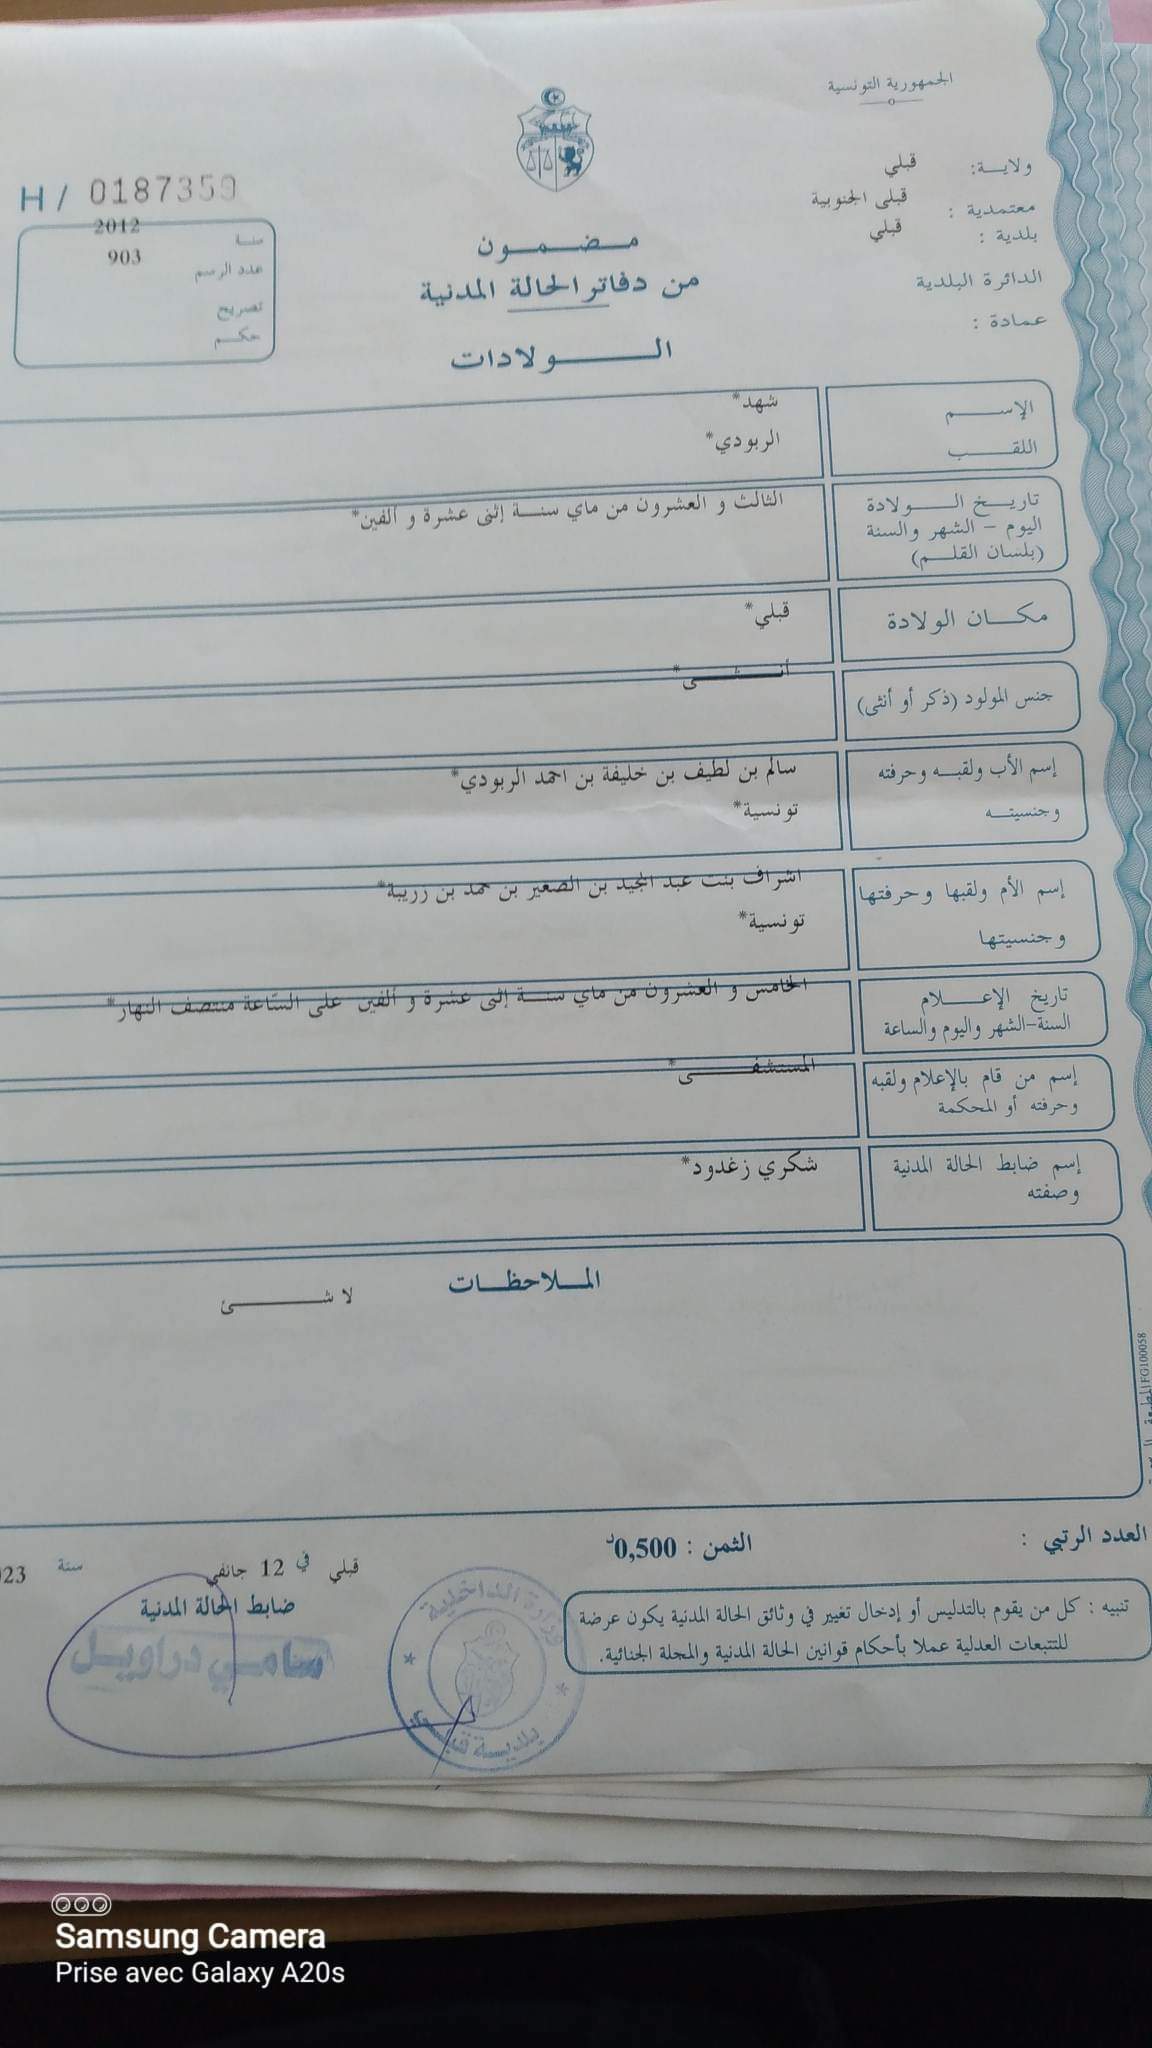 الجمهورية التونسية
ولاية: قبلي
معتمدية : قبلى الجنوبية
بلدية : قبلي
الدائرة البلدية
عمادة :
H / 0187359
سنة 2012
عدد الرسم 903
تصريح
حكم
مضمون
من دفاتر الحالة المدنية
الولادات
الإسم شهد*
اللقب الربودي*
تاريخ الولادة
اليوم - الشهر والسنة
(بلسان القلم)
الثالث و العشرون من ماي سنة إثنى عشرة و ألفين*
مكان الولادة قبلي*
جنس المولود (ذكر أو أنثى) أنثى*
إسم الأب ولقبه وحرفته سالم بن لطيف بن خليفة بن احمد الربودي*
وجنسيته تونسية*
إسم الأم ولقبها وحرفتها اشراف بنت عبد المجيد بن الصغير بن محمد بن زريبة*
وجنسيتها تونسية*
تاريخ الإعلام
السنة-الشهر واليوم والساعة
الخامس و العشرون من ماي سنة إثنى عشرة و ألفين على السّاعة منتصف النهار*
إسم من قام بالإعلام ولقبه
وحرفته أو المحكمة
المستشفى*
إسم ضابط الحالة المدنية
وصفته
شكري زغدود*
الملاحظات
لا شئ
FG100058
العدد الرتبي :
الثمن : 0,500د
قبلي في 12 جانفي سنة 023
ضابط الحالة المدنية
سامي دراويل
وزارة الداخلية
بلدية قبلي
تنبيه : كل من يقوم بالتدليس أو إدخال تغيير في وثائق الحالة المدنية يكون عرضة
للتتبعات العدلية عملا بأحكام قوانين الحالة المدنية والمجلة الجنائية.
Samsung Camera
Prise avec Galaxy A20s